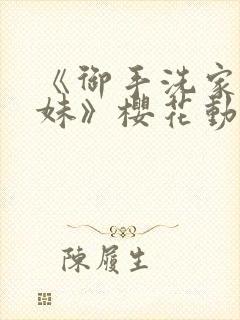 《御手洗家
妹》櫻花動
陳履生